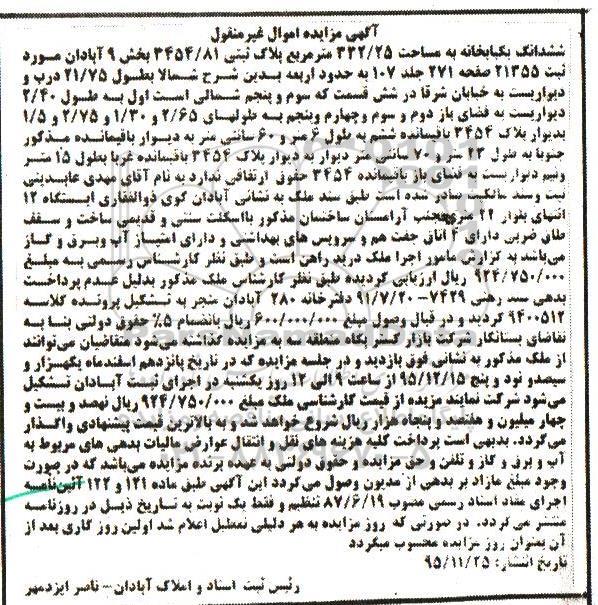 آگهی مزایده اموال غیرمنقول
ششدانگ یکبابخانه به مساحت ۳۳۲/۲۵ مترمربع پلاک ثبتی ۳۴۵۴/۸۱ بخش ۹ آبادان مورد
ثبت ۲۱۳۵۵ صفحه ۲۷۱ جلد ۱۰۷ به حدود اربعه بدین شرح شمالا بطول ۲۱/۷۵ درب و
دیواریست به خیابان شرقا در شش قسمت که سوم و پنجم شمالی است اول به طول ۲/۴۰
دیواریست به فضای باز دوم و سوم وچهارم وپنجم به طولهای ۲/۶۵ و ۱/۳۰ و ۲/۷۵ و ۱/۵
بدیوار پلاک ۳۴۵۴ باقیمانده ششم به طول ۶ متر و ۶۰ سانتی متر به دیوار باقیمانده مذکور
جنوبا به طول ۲۳ متر و ۷۰ سانتی متر دیوار به دیوار پلاک ۳۴۵۴ باقیمانده غربا بطول ۱۵ متر
ونیم دیواریست به فضای باز باقیمانده ۳۴۵۴ حقوق ارتفاقی ندارد به نام آقای مهدی عابدینی
ثبت وسند مالکیت صادر شده است طبق سند ملک به نشانی آبادان کوی ذوالفقاری ایستگاه ۱۲
انتهای بلوار ۲۲ متری جنب آرامستان ساختمان مذکور بااسکلت سنتی و قدیمی ساخت و سقف
طاق ضربی دارای ۴ اتاق جفت هم و سرویس های بهداشتی و دارای امتیاز آب وبرق و گاز
میباشد به گزارش مامور اجرا ملک درید راهن است و طبق نظر کارشناس رسمی به مبلغ
۹۲۴/۷۵۰/۰۰۰ ریال ارزیابی گردیده طبق نظر کارشناس ملک مذکور بدلیل عدم پرداخت
بدهی سند رهنی ۷۴۲۹-۹۱/۷/۲۰ دفترخانه ۲۸۰ آبادان منجر به تشکیل پرونده کلاسه
۹۴۰۰۵۱۲ گردید و در قبال وصول مبلغ ۶۰۰/۰۰۰/۰۰۰ ریال بانضمام ۵٪ حقوق دولتی بنا به
تقاضای بستانکار شرکت بازار گستر پگاه منطقه سه به مزایده گذاشته می‌شود متقاضیان می‌توانند
از ملک مذکور به نشانی فوق بازدید و در جلسه مزایده که در تاریخ پانزدهم اسفندماه یکهزار و
سیصدو نود و پنج ۹۵/۱۲/۱۵ از ساعت ۹ الی ۱۲ روز یکشنبه در اجرای ثبت آبادان تشکیل
می‌شود شرکت نمایند مزیده از قیمت کارشناسی ملک مبلغ ۹۲۴/۷۵۰/۰۰۰ریال نهصد و بیست و
چهار میلیون و هفتصد و پنجاه هزار ریال شروع خواهد شد و به بالاترین قیمت پیشنهادی واگذار
می‌گردد. بدیهی است پرداخت کلیه هزینه های نقل و انتقال عوارض مالیات بدهی های مربوط به
آب و برق و گاز و تلفن و حق مزایده و حقوق دولتی به عهده برنده مزایده می‌باشد که در صورت
وجود مبلغ مازاد بر بدهی از مدیون وصول می‌گردد این آگهی طبق ماده ۱۲۱ و ۱۲۲ آئین‌نامه
اجرای مفاد اسناد رسمی مصوب ۸۷/۶/۱۹ تنظیم و فقط یک نوبت به تاریخ ذیل در روزنامه
منتشر می‌گردد. در صورتی که روز مزایده به هر دلیلی تعطیل اعلام شد اولین روز کاری بعد از
آن بعنوان روز مزایده محسوب میگردد
تاریخ انتشار: ۹۵/۱۱/۲۵
رئیس ثبت اسناد و املاک آبادان- ناصر ایزدمهر